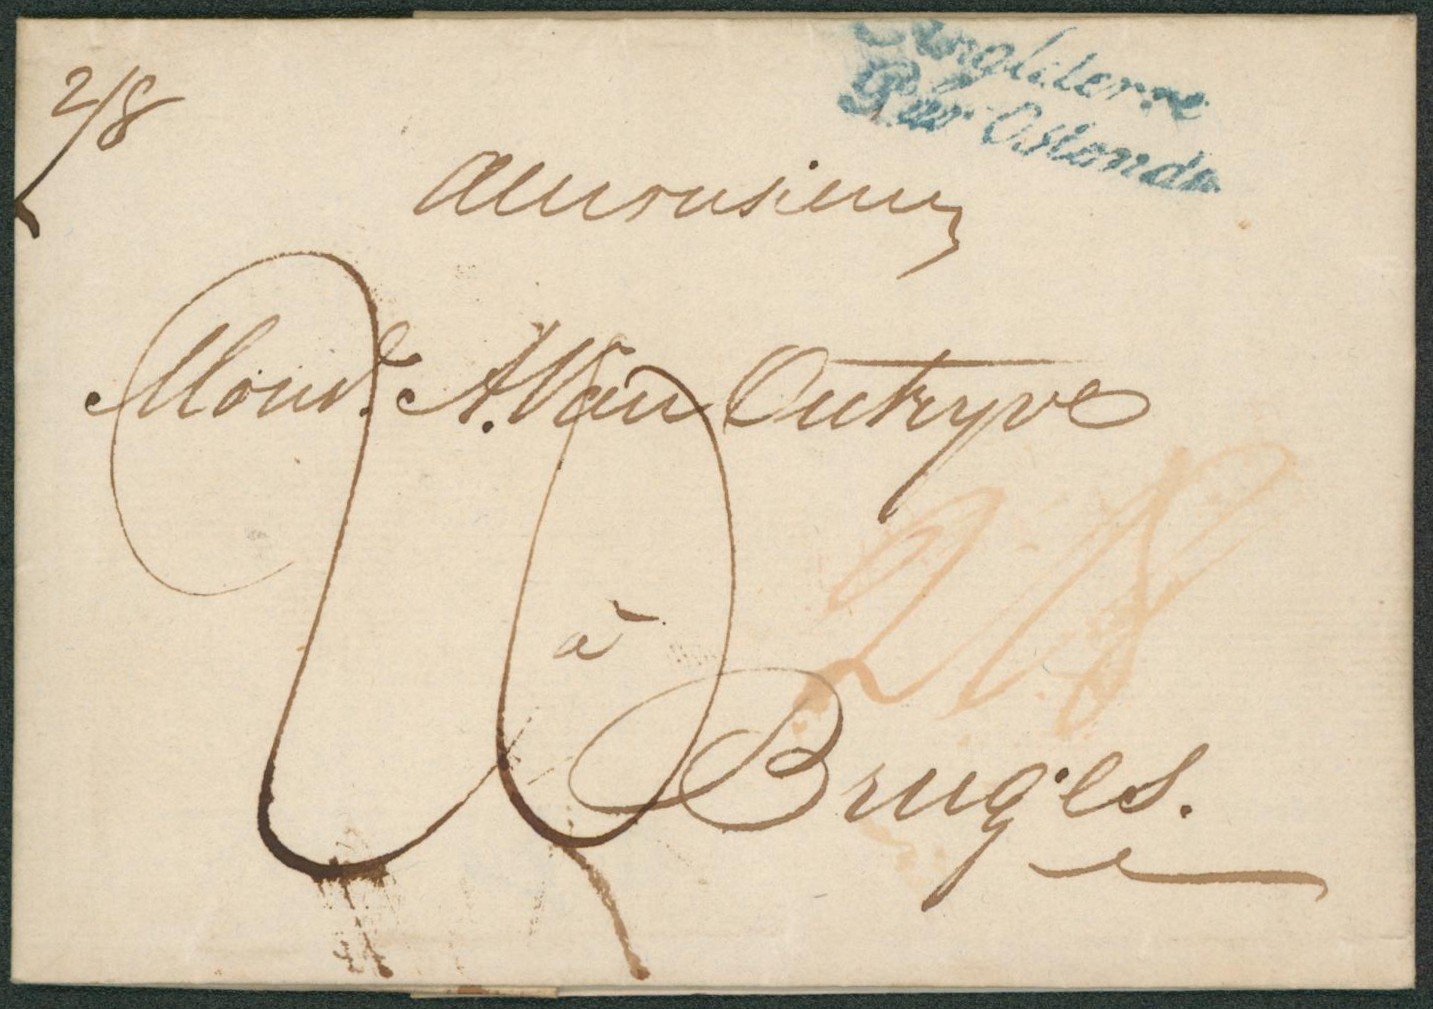 2/8
Angleterre
Par Ostende
A Monsieur
Monsr. A. Van Outryve
20
2/8
à
Bruges.